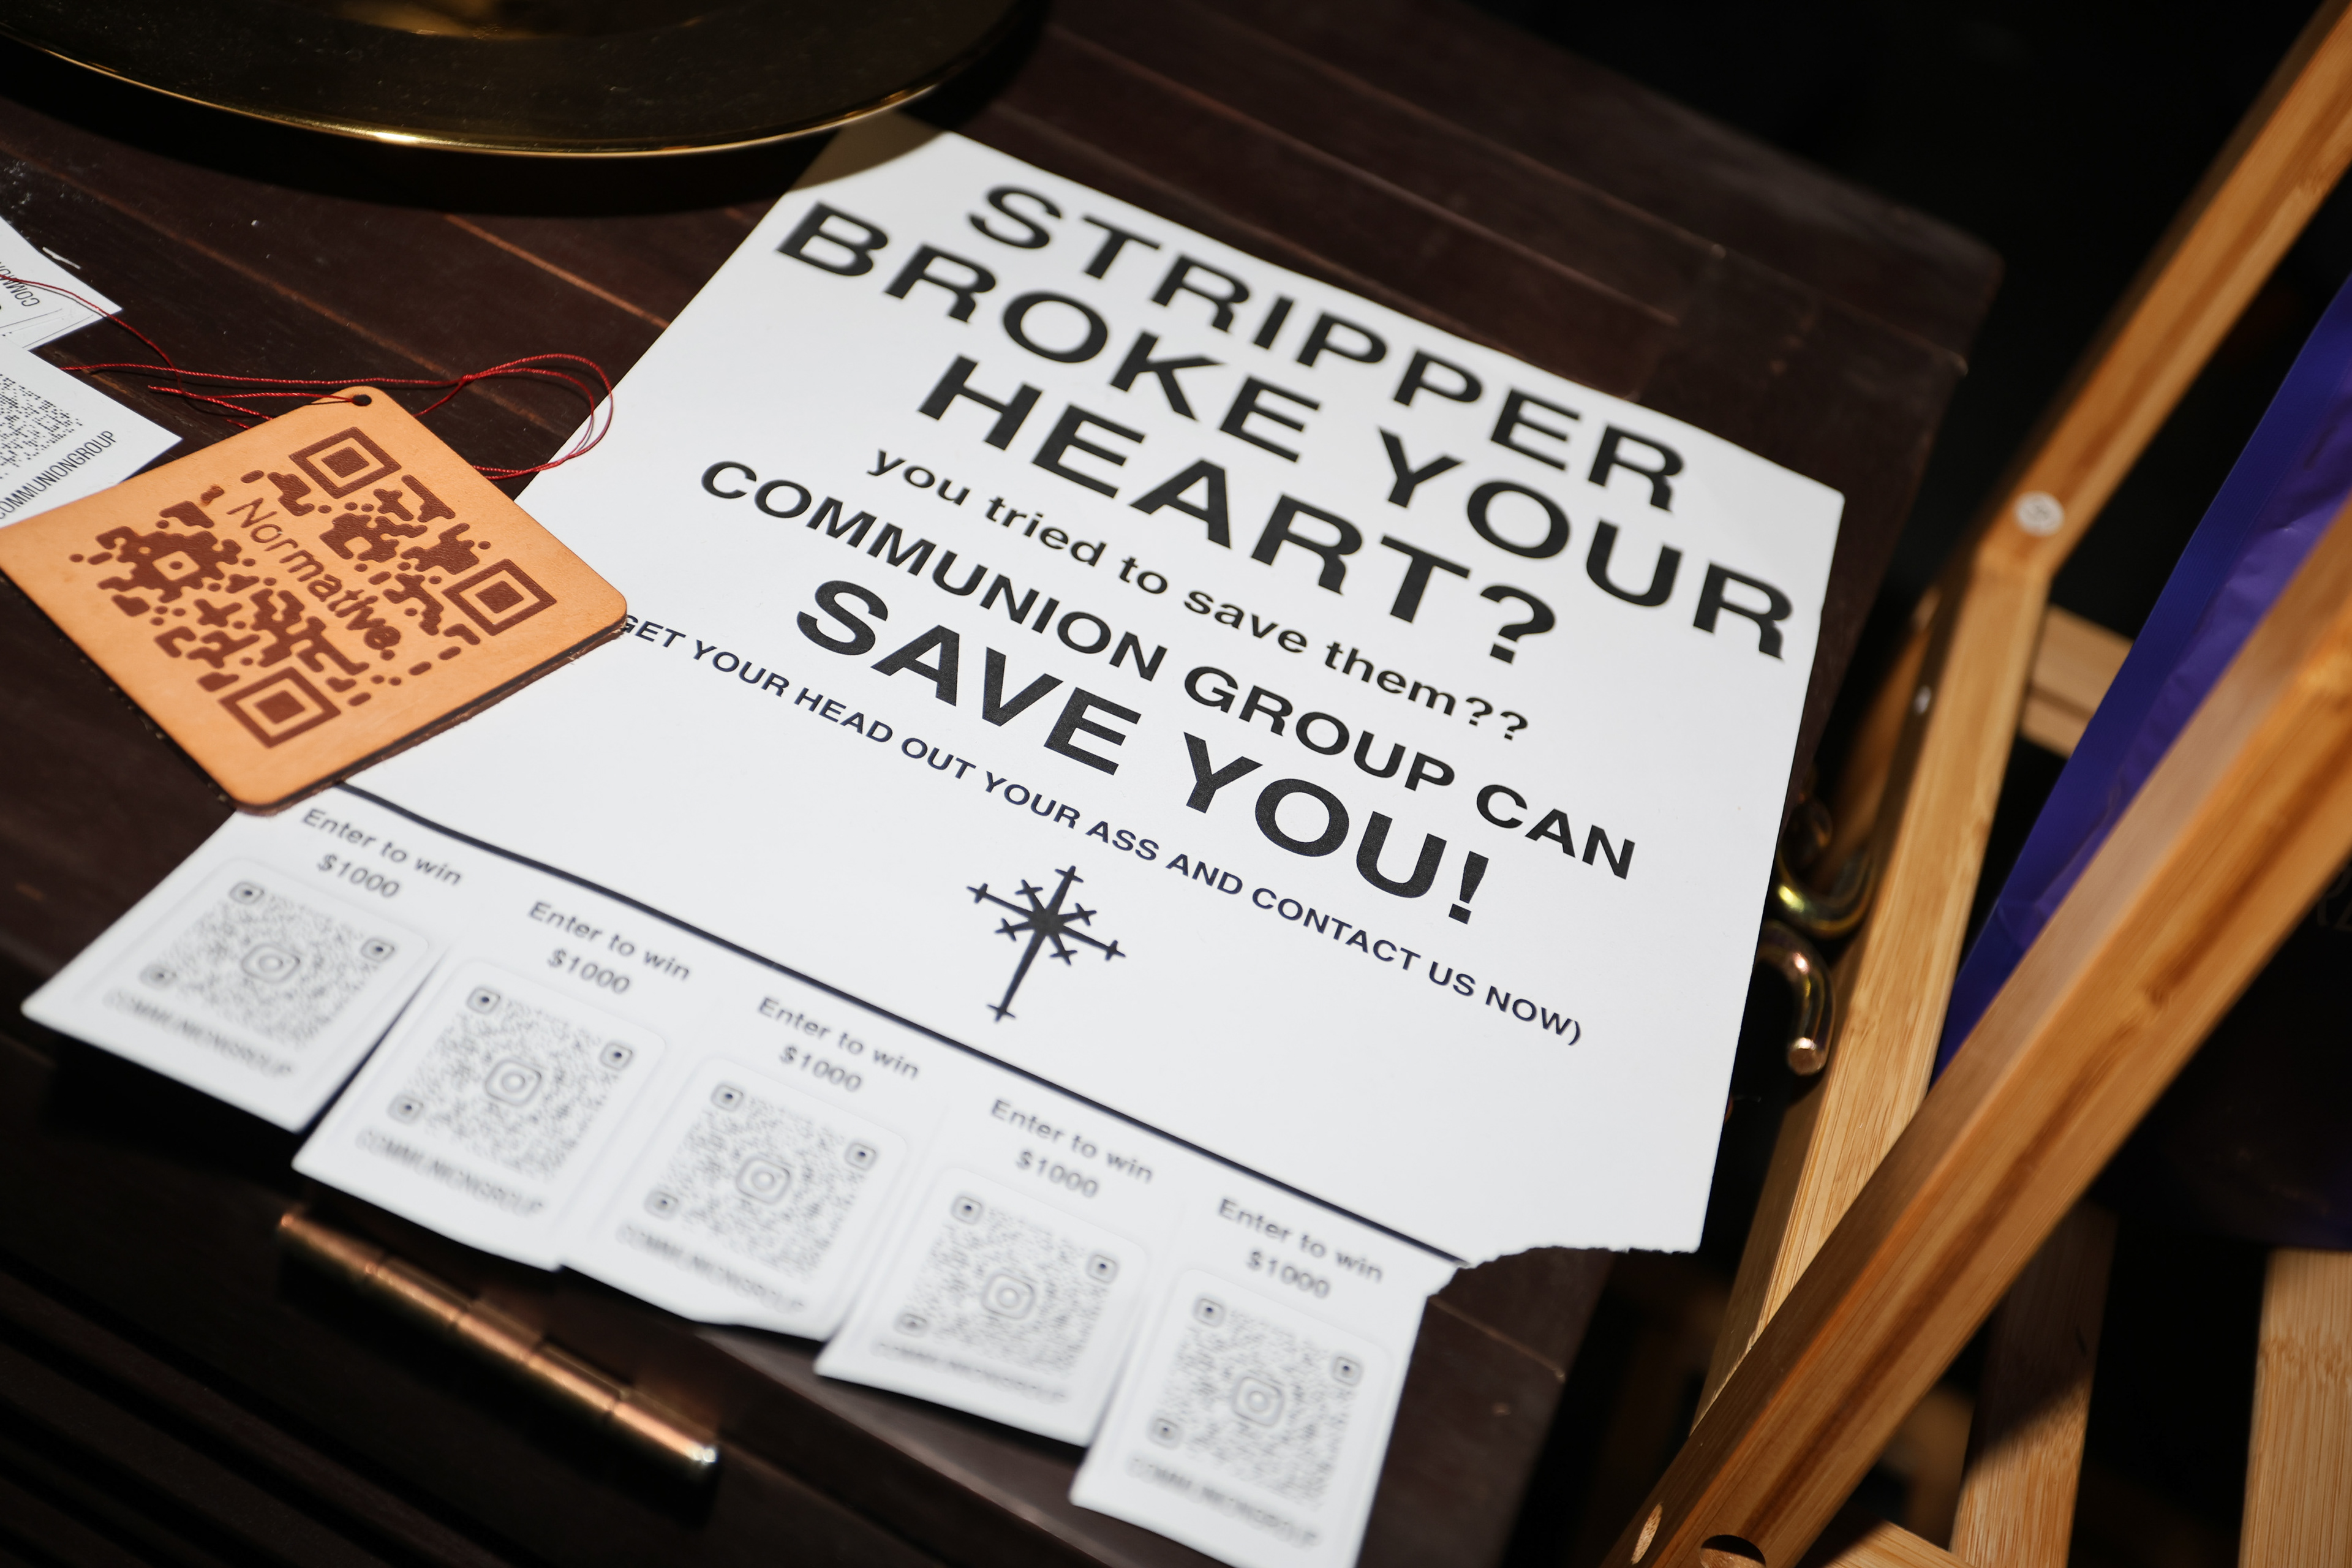 STRIPPER
BROKE YOUR
HEART?
you tried to save them??
COMMUNION GROUP CAN
SAVE YOU!
GET YOUR HEAD OUT YOUR ASS AND CONTACT US NOW)
Enter to win
$1000
COMMUNIONGROUP
Enter to win
$1000
COMMUNIONGROUP
Enter to win
$1000
COMMUNIONGROUP
Enter to win
$1000
COMMUNIONGROUP
Enter to win
$1000
COMMUNIONGROUP
Normative
COMMUNIONGROUP